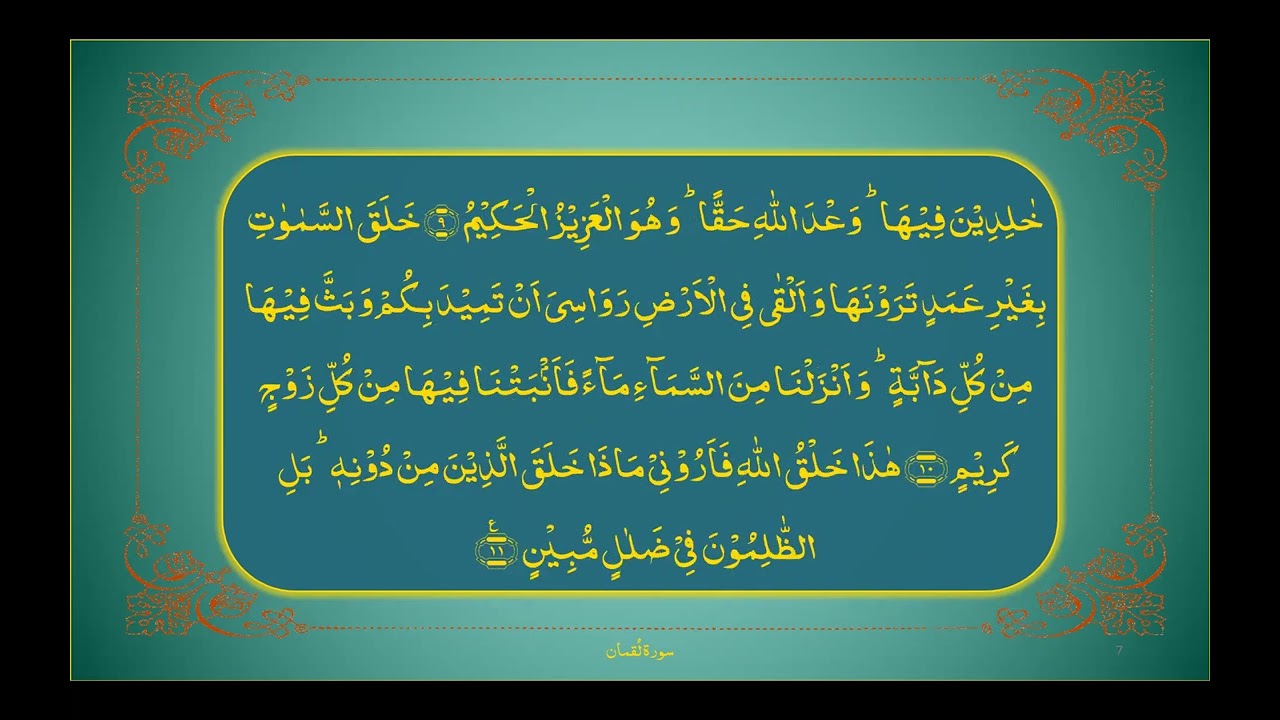 خٰلِدِيْنَ فِيْهَا ؕ وَعْدَ اللّٰهِ حَقًّا ؕ وَهُوَ الْعَزِيْزُ الْحَكِيْمُ ۝۹ خَلَقَ السَّمٰوٰتِ
بِغَيْرِ عَمَدٍ تَرَوْنَهَا وَاَلْقٰى فِي الْاَرْضِ رَوَاسِيَ اَنْ تَمِيْدَ بِكُمْ وَبَثَّ فِيْهَا
مِنْ كُلِّ دَآبَّةٍ ؕ وَاَنْزَلْنَا مِنَ السَّمَآءِ مَآءً فَاَنْۢبَتْنَا فِيْهَا مِنْ كُلِّ زَوْجٍ
كَرِيْمٍ ۝۱۰ هٰذَا خَلْقُ اللّٰهِ فَاَرُوْنِيْ مَاذَا خَلَقَ الَّذِيْنَ مِنْ دُوْنِهٖ ؕ بَلِ
الظّٰلِمُوْنَ فِيْ ضَلٰلٍ مُّبِيْنٍ ۝۱۱ ع
سورة لُقمان
7